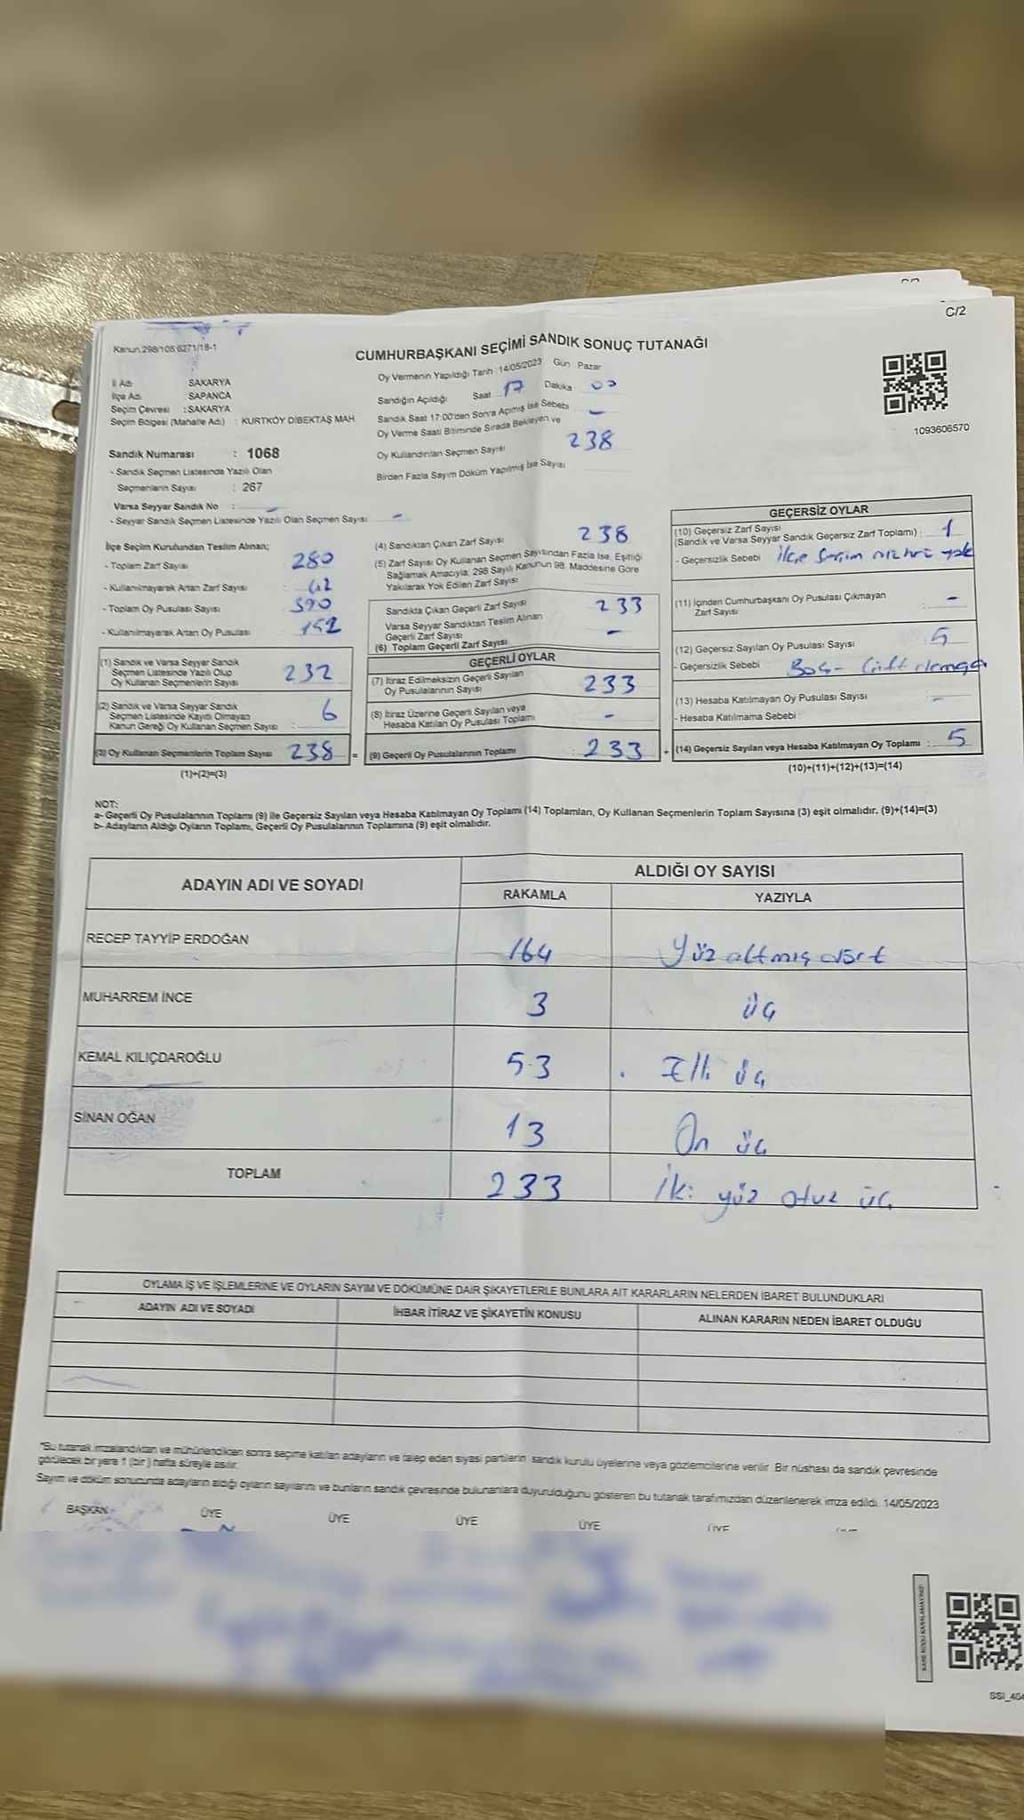 C/2
Kanun.298/105 6271/18-1
CUMHURBAŞKANI SEÇİMİ SANDIK SONUÇ TUTANAĞI
İl Adı SAKARYA
İlçe Adı SAPANCA
Seçim Çevresi : SAKARYA
Seçim Bölgesi (Mahalle Adı) : KURTKÖY DİBEKTAŞ MAH
Sandık Numarası : 1068
- Sandık Seçmen Listesinde Yazılı Olan
Seçmenlerin Sayısı : 267
Varsa Seyyar Sandık No : -
- Seyyar Sandık Seçmen Listesinde Yazılı Olan Seçmen Sayısı -
Oy Vermenin Yapıldığı Tarih : 14/05/2023 Gün Pazar
Sandığın Açıldığı Saat 17 Dakika 00
Sandık Saat 17:00'den Sonra Açılmış İse Sebebi -
Oy Verme Saati Bitiminde Sırada Bekleyen ve
Oy Kullandırılan Seçmen Sayısı 238
Birden Fazla Sayım Döküm Yapılmış İse Sayısı
1093606570
İlçe Seçim Kurulundan Teslim Alınan;
- Toplam Zarf Sayısı 280
- Kullanılmayarak Artan Zarf Sayısı 42
- Toplam Oy Pusulası Sayısı 390
- Kullanılmayarak Artan Oy Pusulası 152
(1) Sandık ve Varsa Seyyar Sandık
Seçmen Listesinde Yazılı Olup
Oy Kullanan Seçmenlerin Sayısı 232
(2) Sandık ve Varsa Seyyar Sandık
Seçmen Listesinde Kayıtlı Olmayan
Kanun Gereği Oy Kullanan Seçmen Sayısı 6
(3) Oy Kullanan Seçmenlerin Toplam Sayısı 238 =
(1)+(2)=(3)
(4) Sandıktan Çıkan Zarf Sayısı 238
(5) Zarf Sayısı Oy Kullanan Seçmen Sayısından Fazla İse, Eşitliği
Sağlamak Amacıyla, 298 Sayılı Kanunun 98. Maddesine Göre
Yakılarak Yok Edilen Zarf Sayısı
Sandıkta Çıkan Geçerli Zarf Sayısı 233
Varsa Seyyar Sandıktan Teslim Alınan
Geçerli Zarf Sayısı -
(6) Toplam Geçerli Zarf Sayısı
GEÇERLİ OYLAR
(7) İtiraz Edilmeksizin Geçerli Sayılan
Oy Pusulalarının Sayısı 233
(8) İtiraz Üzerine Geçerli Sayılan veya
Hesaba Katılan Oy Pusulası Toplamı -
(9) Geçerli Oy Pusulalarının Toplamı : 233 +
GEÇERSİZ OYLAR
(10) Geçersiz Zarf Sayısı
(Sandık ve Varsa Seyyar Sandık Geçersiz Zarf Toplamı) : 1
- Geçersizlik Sebebi ilçe seçim mührü yok
(11) İçinden Cumhurbaşkanı Oy Pusulası Çıkmayan
Zarf Sayısı -
(12) Geçersiz Sayılan Oy Pusulası Sayısı 5
- Geçersizlik Sebebi Boş -
(13) Hesaba Katılmayan Oy Pusulası Sayısı -
- Hesaba Katılmama Sebebi
(14) Geçersiz Sayılan veya Hesaba Katılmayan Oy Toplamı : 5
(10)+(11)+(12)+(13)=(14)
NOT:
a- Geçerli Oy Pusulalarının Toplamı (9) ile Geçersiz Sayılan veya Hesaba Katılmayan Oy Toplamı (14) Toplamları, Oy Kullanan Seçmenlerin Toplam Sayısına (3) eşit olmalıdır. (9)+(14)=(3)
b- Adayların Aldığı Oyların Toplamı, Geçerli Oy Pusulalarının Toplamına (9) eşit olmalıdır.
ADAYIN ADI VE SOYADI ALDIĞI OY SAYISI
RAKAMLA YAZIYLA
RECEP TAYYİP ERDOĞAN 164 Yüz altmış dört
MUHARREM İNCE 3 üç
KEMAL KILIÇDAROĞLU 53 Elli üç
SİNAN OĞAN 13 On üç
TOPLAM 233 İki yüz otuz üç
OYLAMA İŞ VE İŞLEMLERİNE VE OYLARIN SAYIM VE DÖKÜMÜNE DAİR ŞİKAYETLERLE BUNLARA AİT KARARLARIN NELERDEN İBARET BULUNDUKLARI
ADAYIN ADI VE SOYADI İHBAR İTİRAZ VE ŞİKAYETİN KONUSU ALINAN KARARIN NEDEN İBARET OLDUĞU
*Bu tutanak imzalandıktan ve mühürlendikten sonra seçime katılan adayların ve talep eden siyasi partilerin sandık kurulu üyelerine veya gözlemcilerine verilir. Bir nüshası da sandık çevresinde
görülecek bir yere 1 (bir) hafta süreyle asılır.
Sayım ve döküm sonucunda adayların aldığı oyların sayılarını ve bunların sandık çevresinde bulunanlara duyurulduğunu gösteren bu tutanak tarafımızdan düzenlenerek imza edildi. 14/05/2023
BAŞKAN ÜYE ÜYE ÜYE ÜYE ÜYE